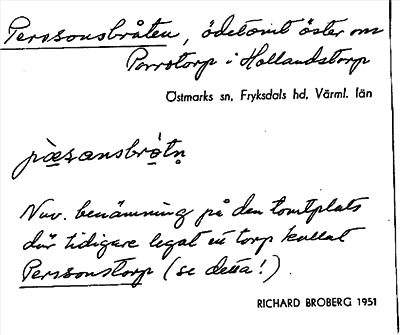 Perssonsbråten, ödetomt öster om
Porrstorp i Hollandstorp
Östmarks sn, Fryksdals hd, Värml. län
pæ̀sansbrò̢tn̥
Nuv. benämning på den tomtplats
där tidigare legat ett torp kallat
Perssonstorp (se detta!).
RICHARD BROBERG 1951